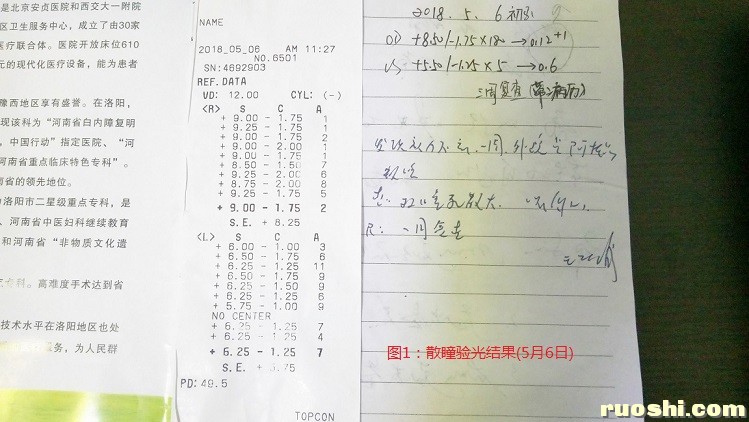 是北京安贞医院和西交大一附院
区卫生服务中心，成立了由30家
医疗联合体。医院开放床位610
元的现代化医疗设备，能为患者
豫西地区享有盛誉。在洛阳，
现该科为“河南省白内障复明
，中国行动”指定医院、“河
河南省重点临床特色专科”。
南省的领先地位。
为洛阳市二星级重点专科，是
、河南省中医妇科继续教育
和河南省“非物质文化遗
专科。高难度手术达到省
技术水平在洛阳地区也处
服务，为人民群
NAME
2018_05_06 AM 11:27
NO.6501
SN:4692903
REF.DATA
VD: 12.00 CYL: (-)
<R> S C A
+ 9.00 - 1.75 1
+ 9.00 - 1.75 1
+ 9.00 - 2.00 1
+ 9.00 - 1.75 1
+ 8.50 - 1.50 7
+ 9.25 - 2.00 6
+ 8.75 - 2.00 8
+ 9.25 - 1.75 5
+ 9.00 - 1.75 2
S.E. + 8.25
<L> S C A
+ 6.00 - 1.00 3
+ 6.50 - 1.75 6
+ 6.25 - 1.25 11
+ 6.50 - 1.75 9
+ 6.25 - 1.25 9
+ 6.25 - 1.25 6
+ 5.75 - 1.00 9
NO CENTER
+ 6.25 - 1.25 7
+ 6.25 - 1.25 4
+ 6.25 - 1.25 7
S.E. + 5.75
PD: 49.5
TOPCON
2018. 5. 6
OD +8.50/-1.75×180→0.12⁺¹
+5.50/-1.25×5→0.6
三周复查
图1：散瞳验光结果(5月6日)
ruoshi.com